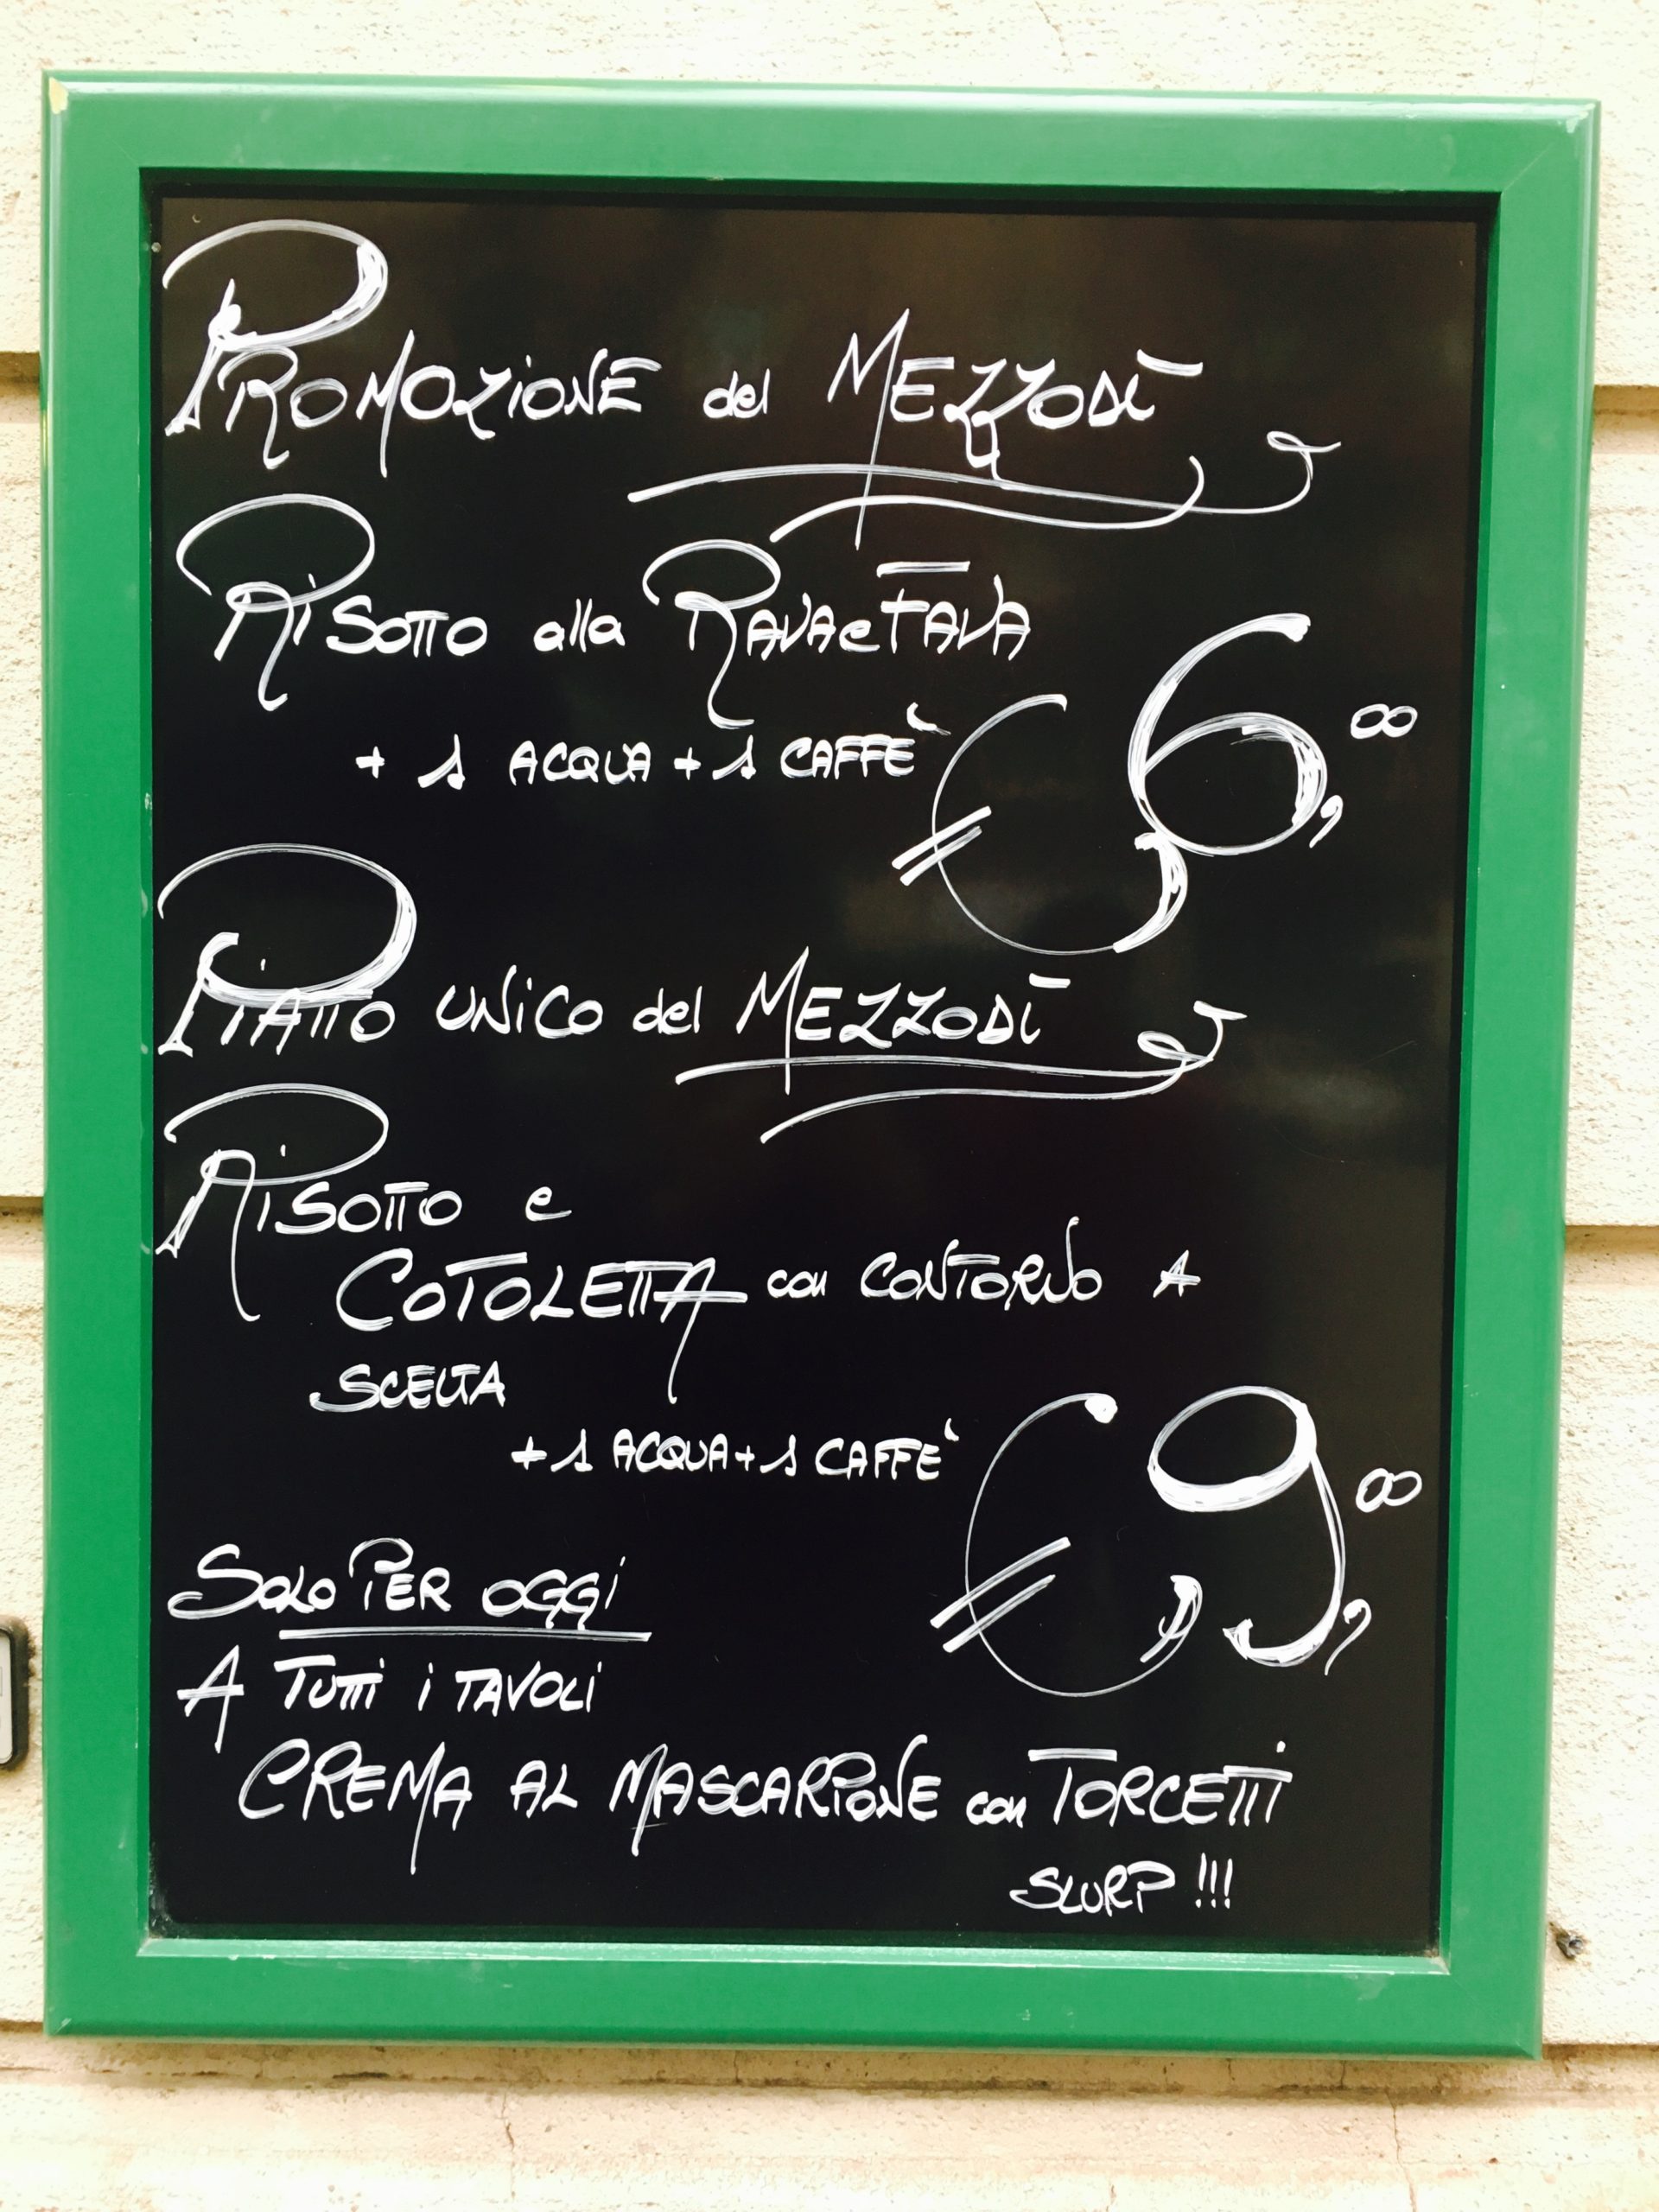 PROMOZIONE del MEZZODÌ
RISOTTO alla RAVA e FAVA
+ 1 ACQUA + 1 CAFFÈ
€ 6,00
PIATTO UNICO del MEZZODÌ
RISOTTO e
COTOLETTA con CONTORNO A
SCELTA
+ 1 ACQUA + 1 CAFFÈ
€ 9,00
SOLO PER OGGI
A TUTTI i TAVOLI
CREMA AL MASCARPONE con TORCETTI
SLURP !!!